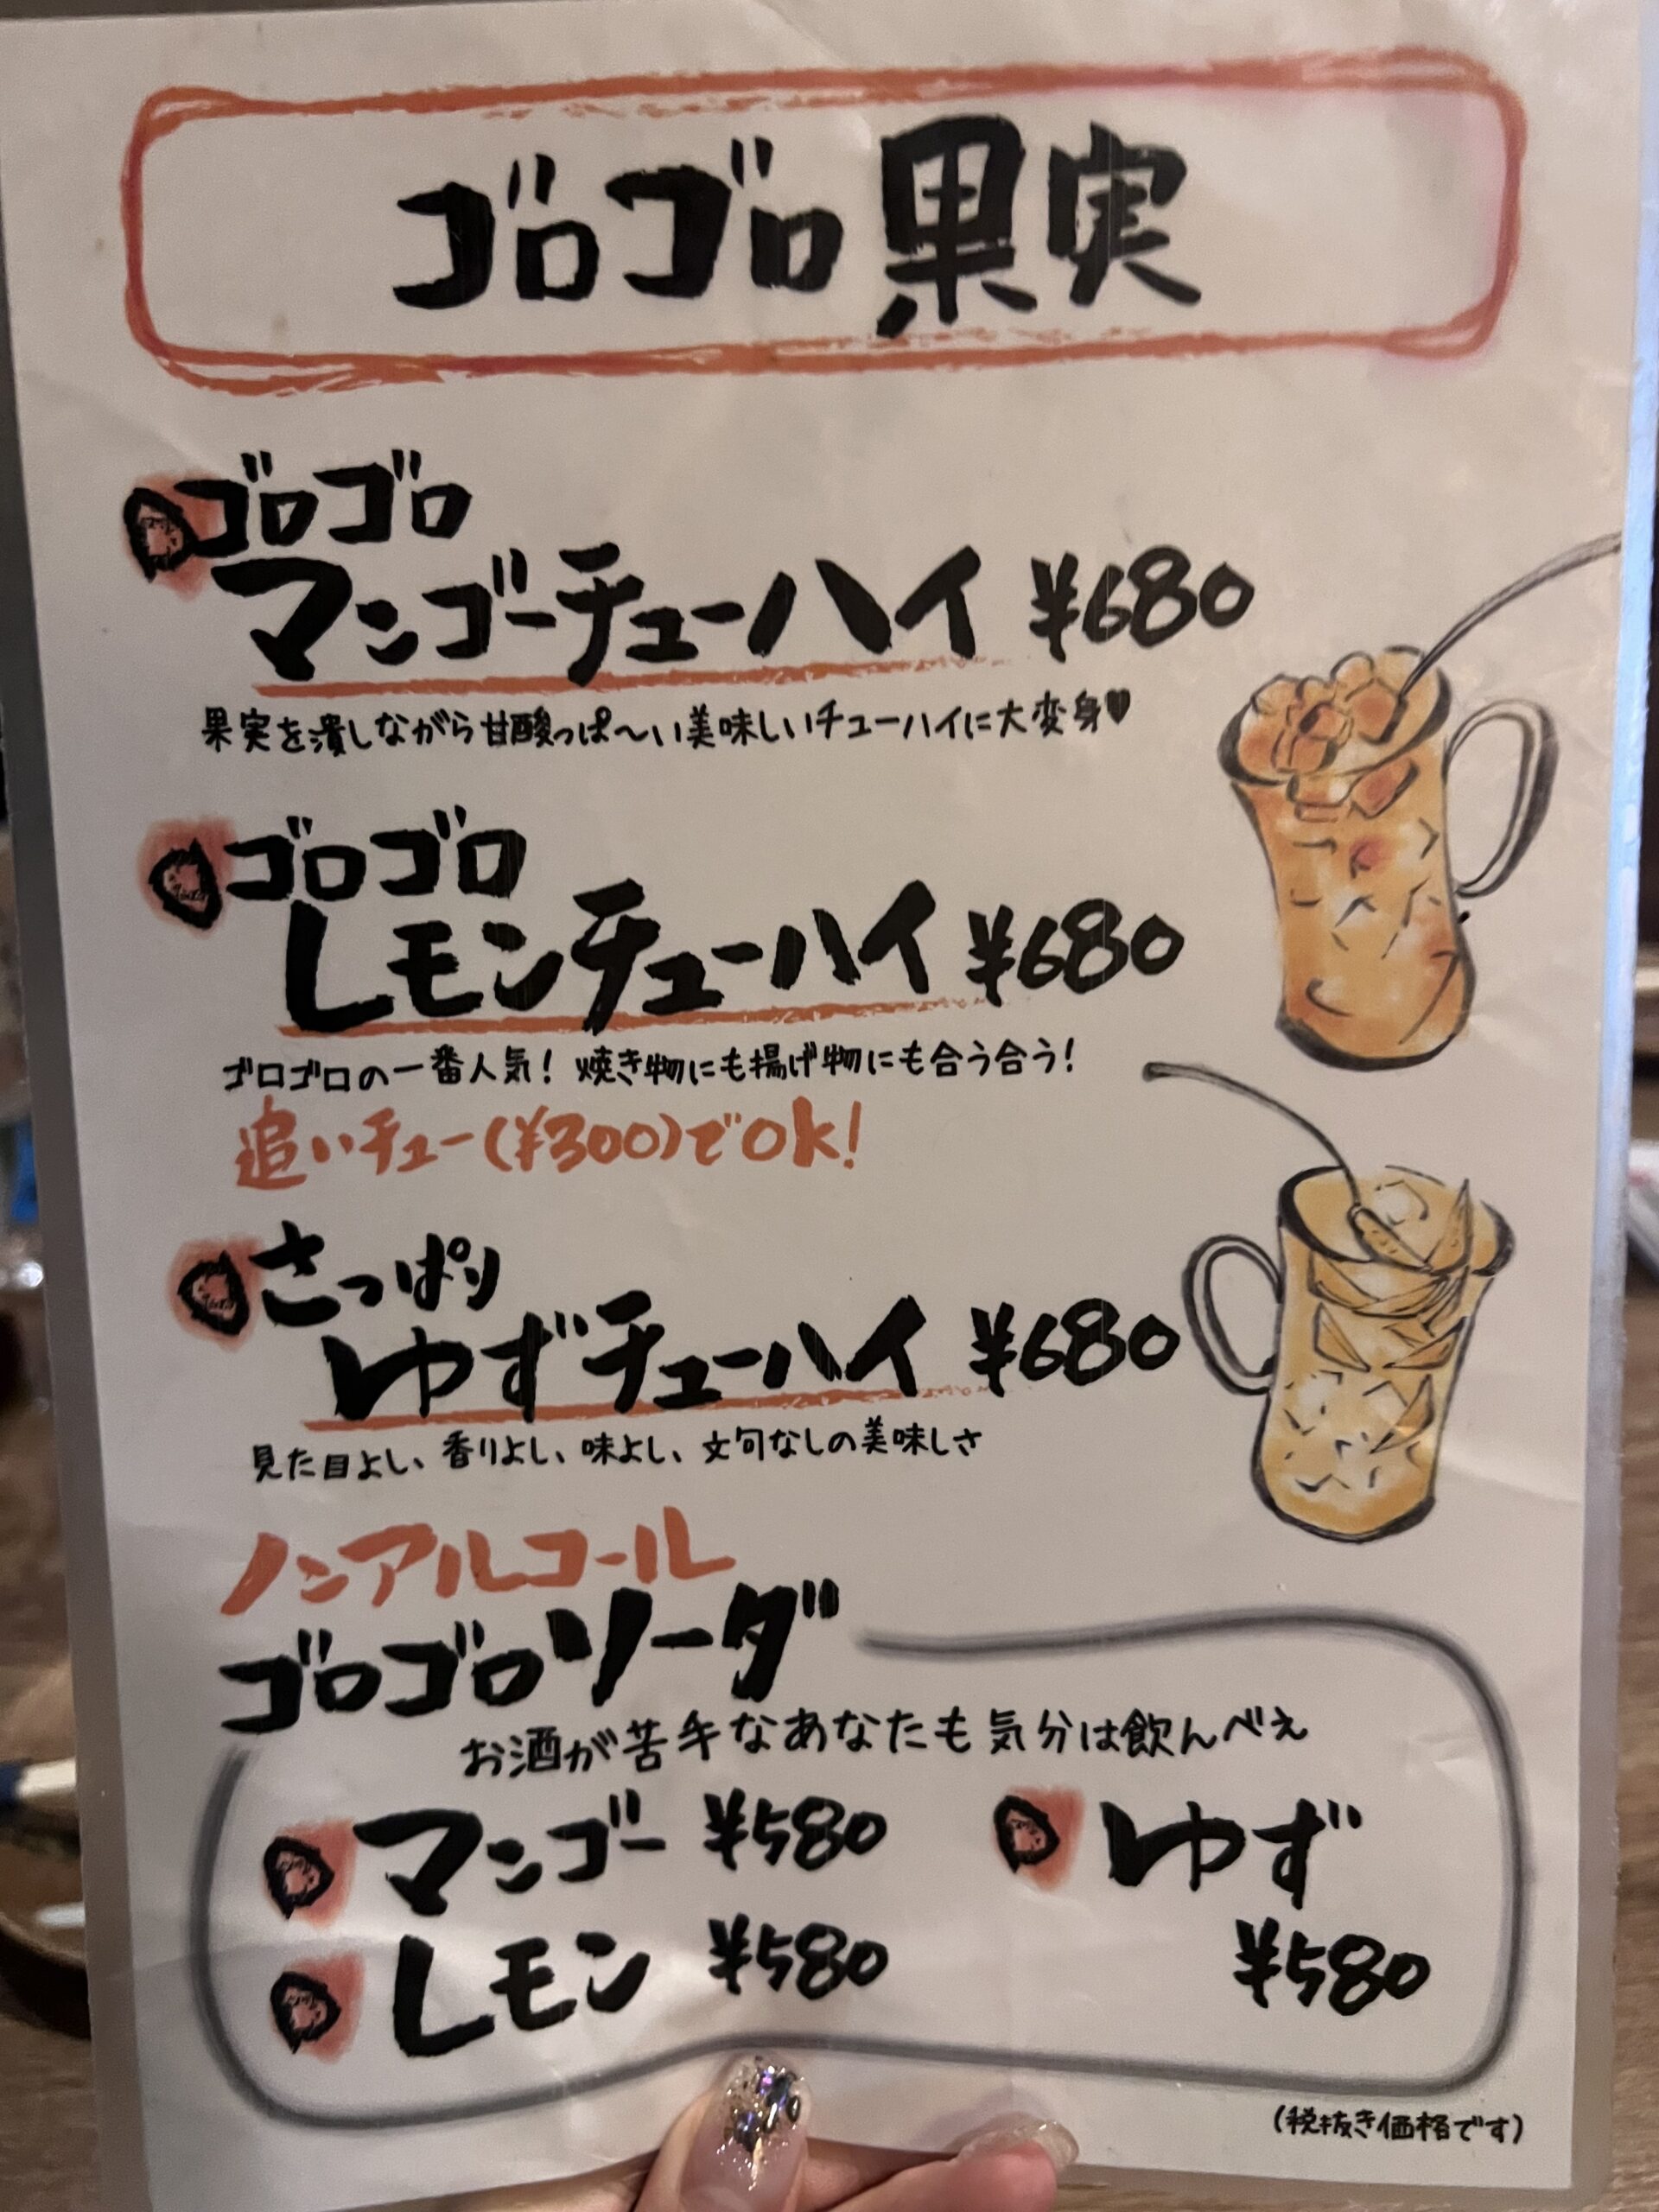 ゴロゴロ果実
ゴロゴロ
マンゴーチューハイ ¥680
果実を潰しながら甘酸っぱ～い美味しいチューハイに大変身♥
ゴロゴロ
レモンチューハイ ¥680
ゴロゴロの一番人気！焼き物にも揚げ物にも合う合う！
追いチュー(¥300)でOk！
さっぱり
ゆずチューハイ ¥680
見た目よし、香りよし、味よし、文句なしの美味しさ
ノンアルコール
ゴロゴロソーダ
お酒が苦手なあなたも気分は飲んべえ
マンゴー ¥580
レモン ¥580
ゆず
¥580
(税抜き価格です)